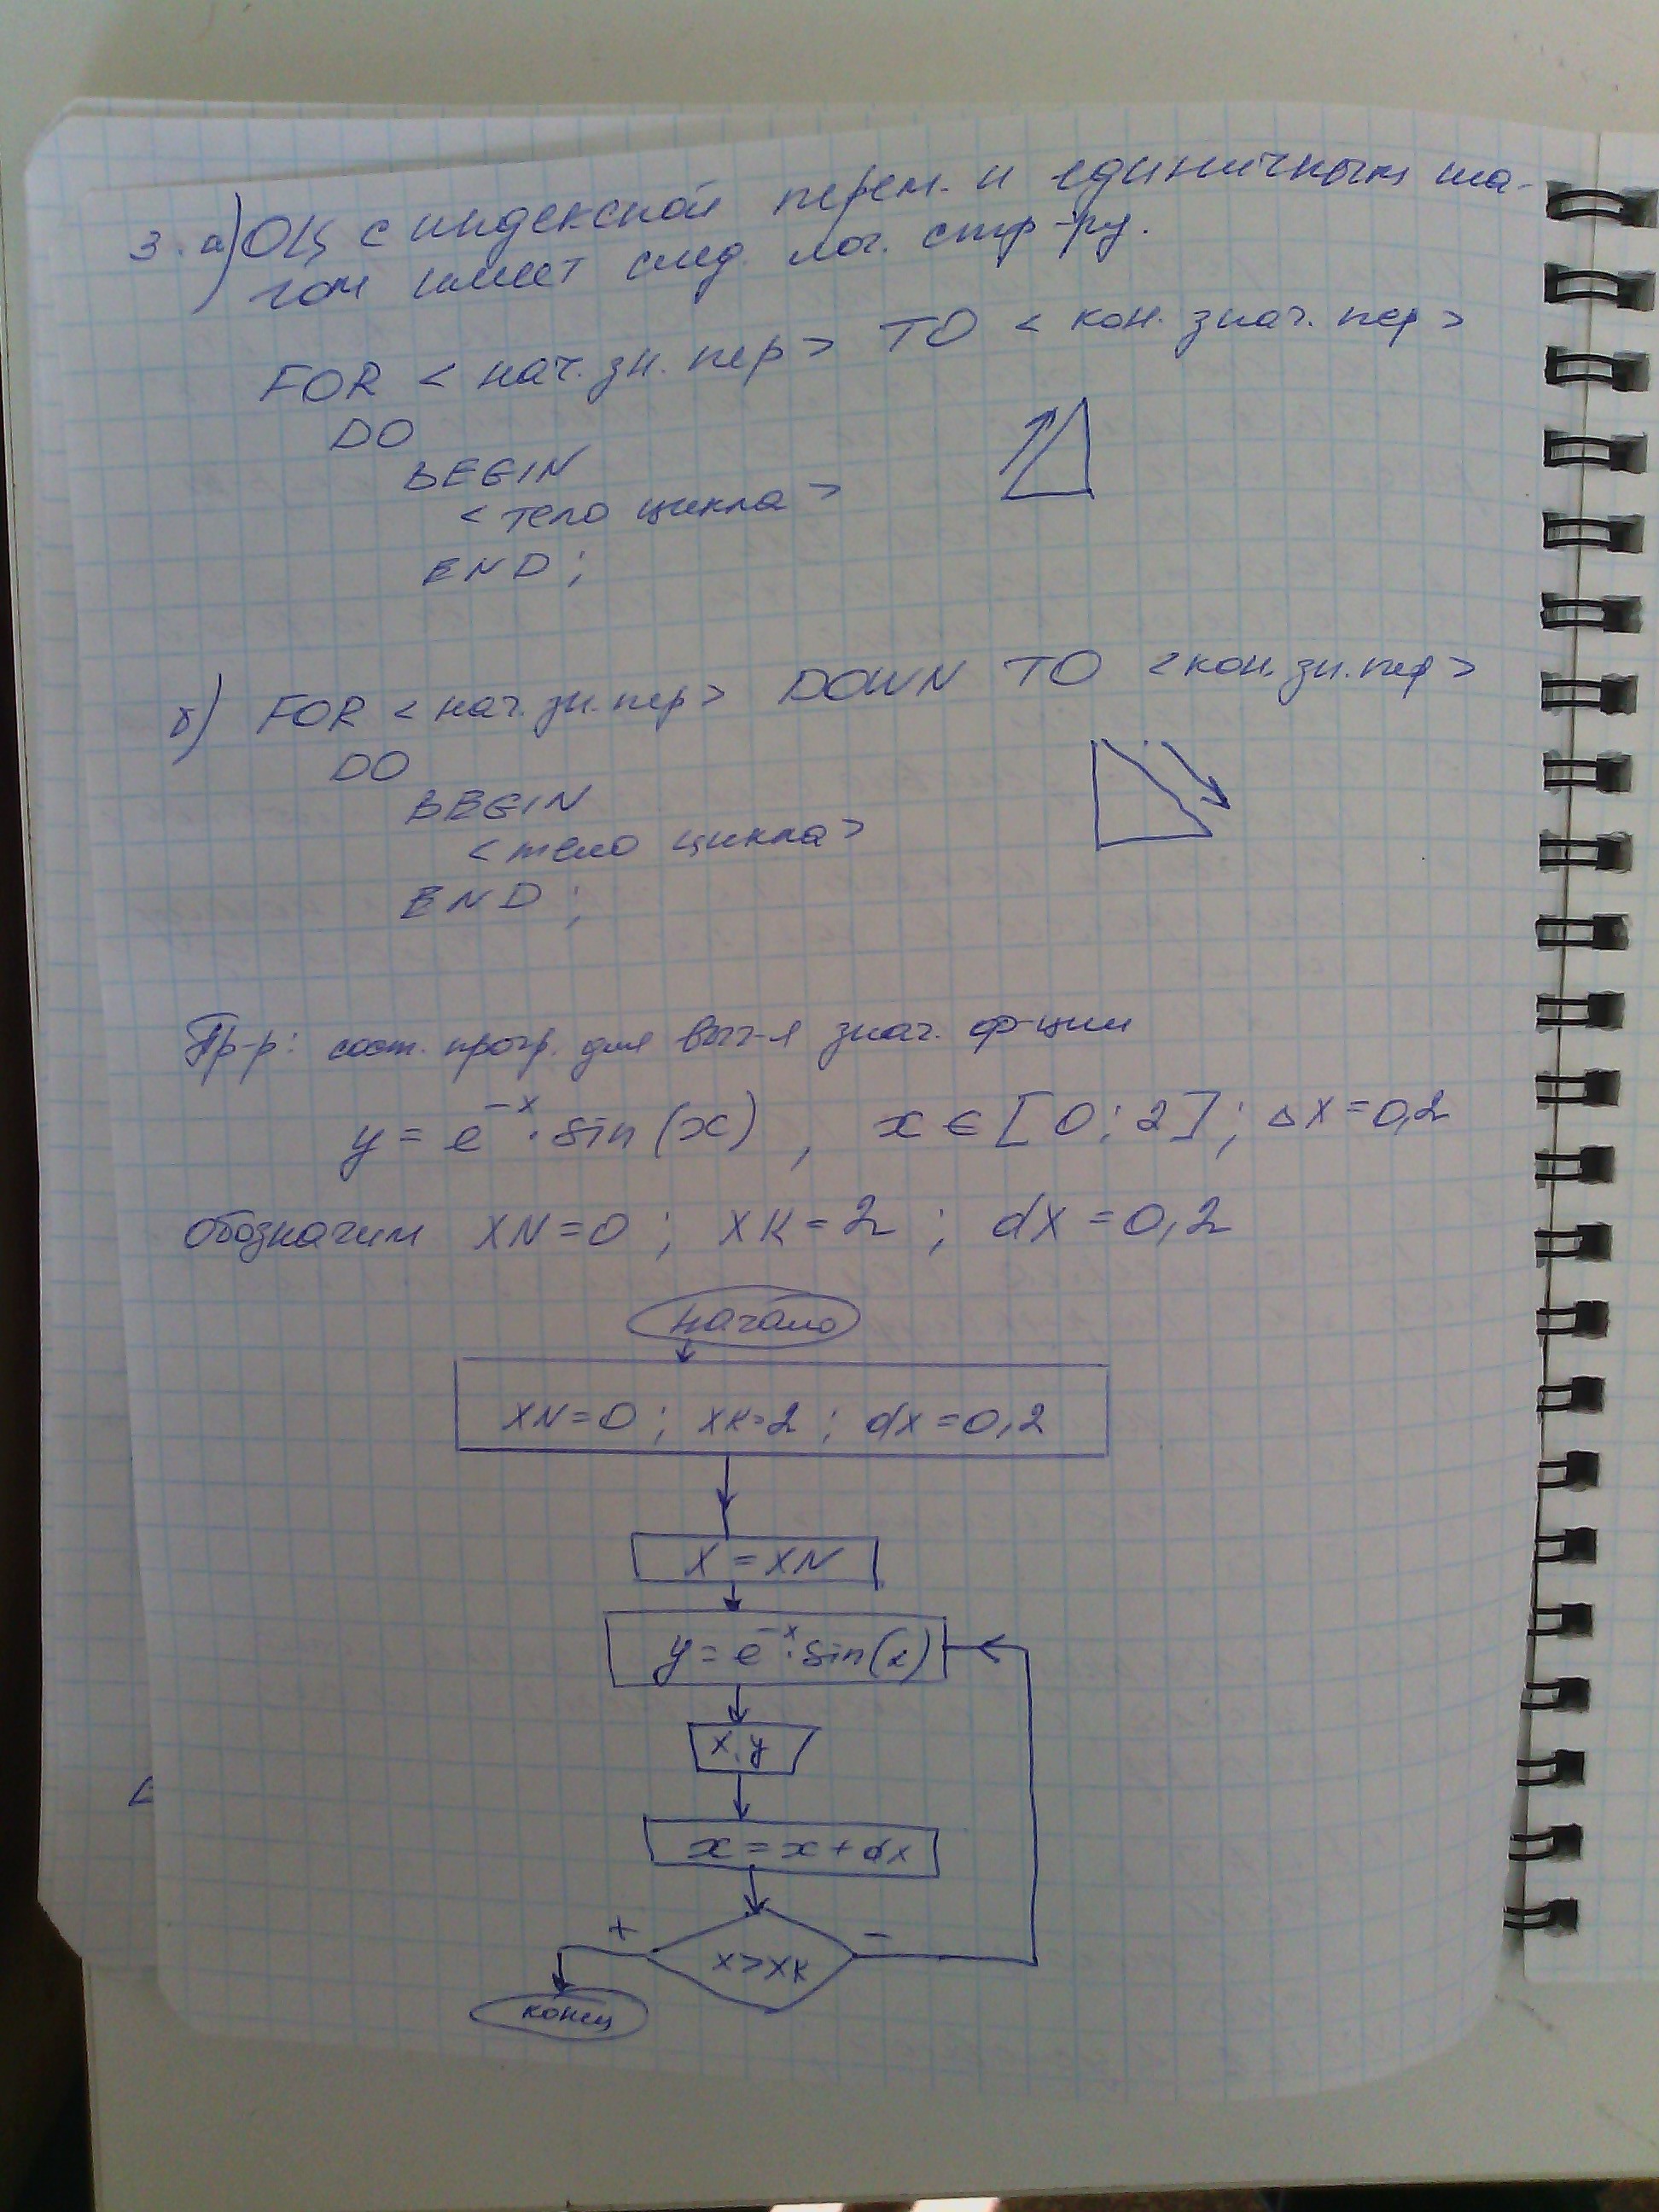 3. а) ОЦ с индексной перем. и единичным ша-
гом имеет след. лог. стр-ру.
FOR < нач. зн. пер > TO < кон. знач. пер >
DO
BEGIN
< тело цикла >
END ;
б) FOR < нач. зн. пер > DOWN TO < кон. зн. пер >
DO
BEGIN
< тело цикла >
END ;
Пр-р: сост. прогр. для выч-я знач. ф-ции
y = e^-x · sin(x) , x ∈ [0; 2]; Δx = 0,2
обозначим XN = 0 ; XK = 2 ; dX = 0,2
начало
XN = 0 ; XK = 2 ; dX = 0,2
X = XN
y = e^-x · sin(x)
x, y
x = x + dx
+ x > XK -
конец